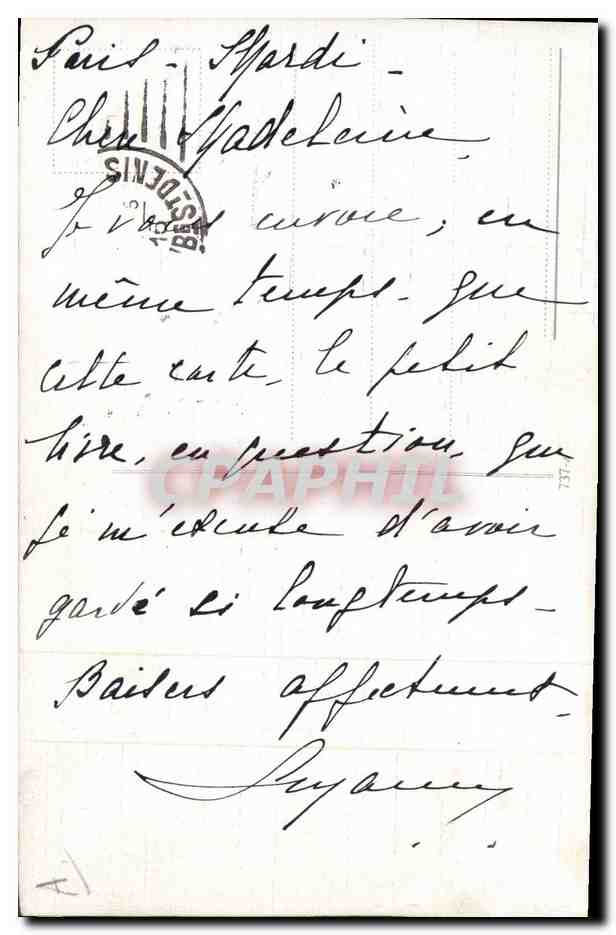 Paris - Mardi -
Chère Madeleine,
Je vous envoie, en
même temps - que
cette carte, le petit
livre, en question, que
je m'excuse d'avoir
gardé si longtemps -
Baisers affectment -
Suzanne
BG ST-DENIS
CPAPHIL
737-